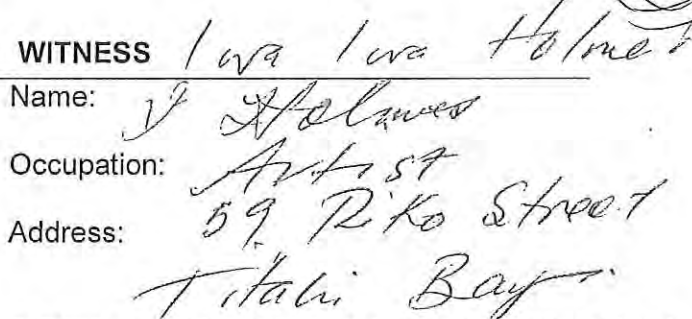 WITNESS Iwa Iwa Holmes
Name: I Holmes
Occupation: Artist
Address: 59 Piko Street
Titahi Bay